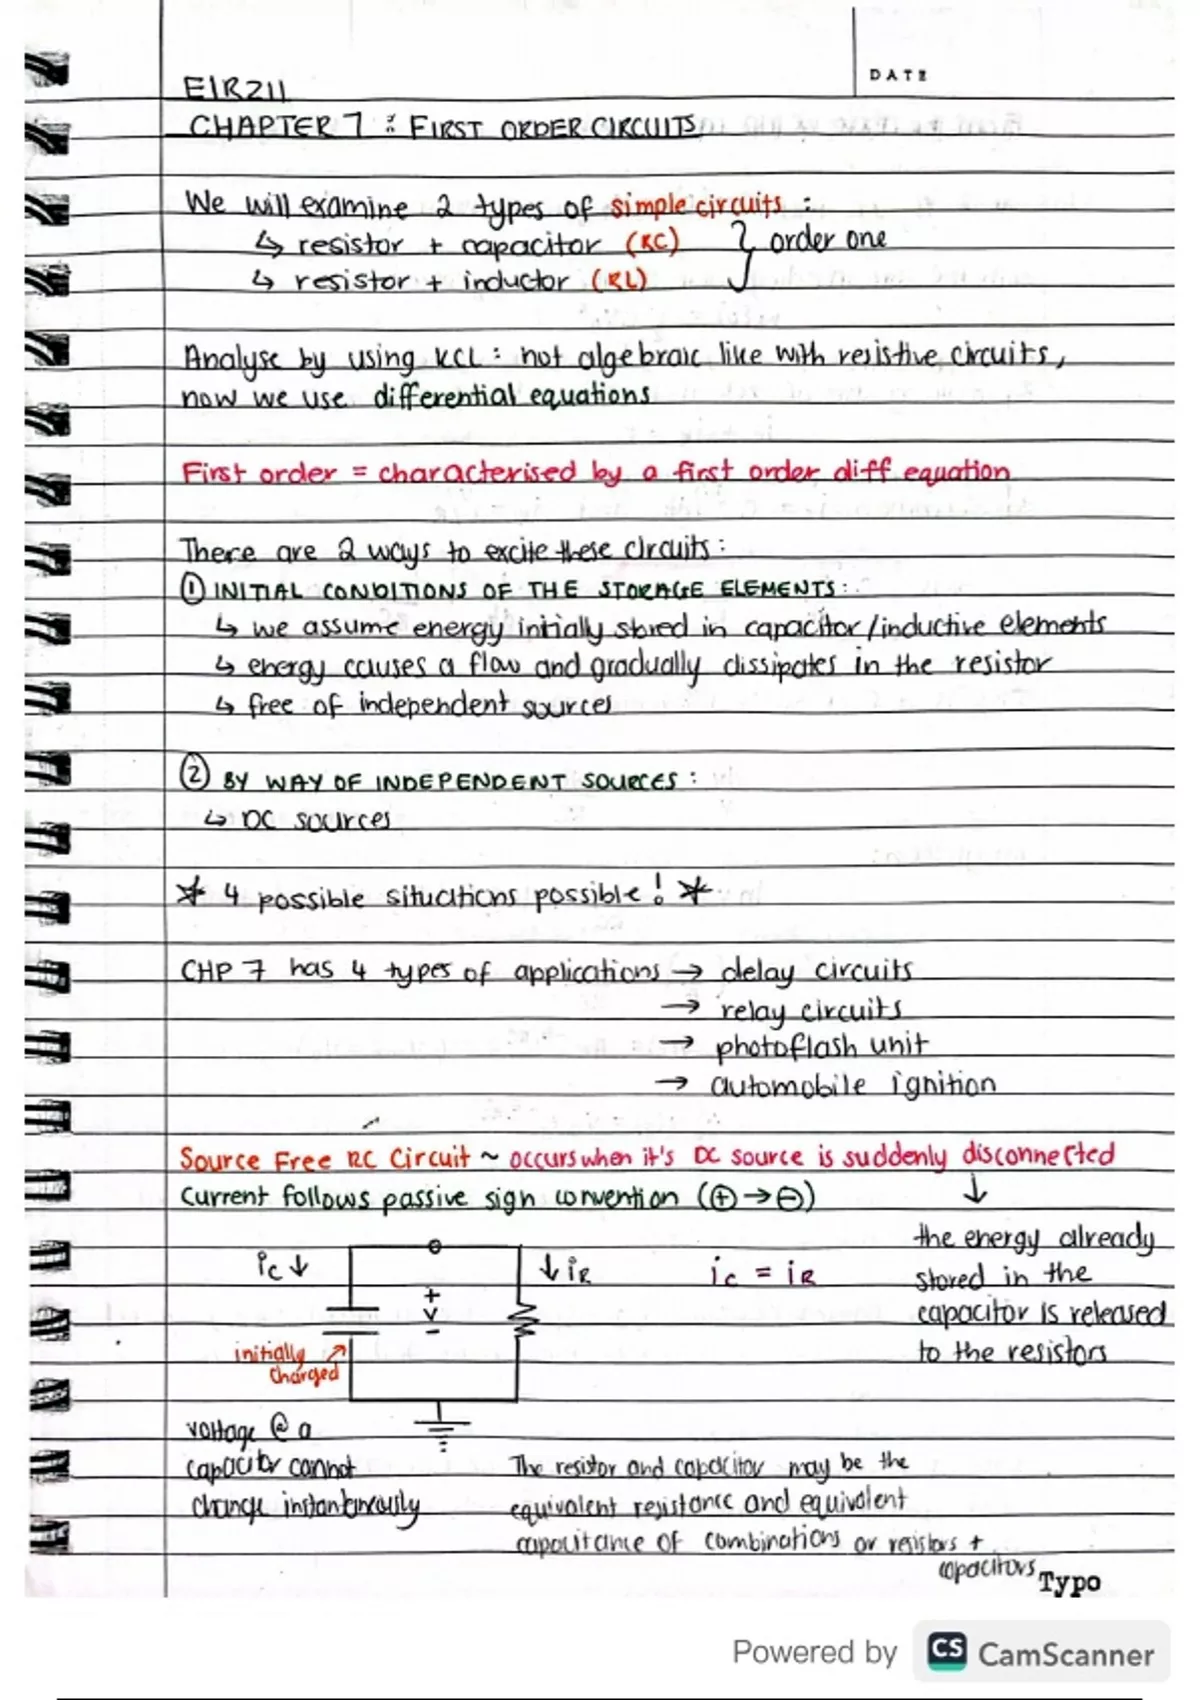 DATE
EIR211
CHAPTER 7 : FIRST ORDER CIRCUITS
We will examine 2 types of simple circuits :
↳ resistor + capacitor (RC) } order one
↳ resistor + inductor (RL)
Analyse by using KCL : not algebraic like with resistive circuits,
now we use differential equations
First order = characterised by a first order diff equation
There are 2 ways to excite these circuits :
① INITIAL CONDITIONS OF THE STORAGE ELEMENTS :
↳ we assume energy initially stored in capacitor/inductive elements
↳ energy causes a flow and gradually dissipates in the resistor
↳ free of independent sources
② BY WAY OF INDEPENDENT SOURCES :
↳ DC sources
* 4 possible situations possible! *
CHP 7 has 4 types of applications → delay circuits
→ relay circuits
→ photoflash unit
→ automobile ignition
Source Free RC Circuit ~ occurs when it's DC source is suddenly disconnected
Current follows passive sign convention (⊕→⊖) ↓
the energy already
stored in the
capacitor is released
to the resistors
ic ↓
+
v
-
↓ iR
ic = iR
initially
charged
voltage @ a
capacitor cannot
change instantaneously
The resistor and capacitor may be the
equivalent resistance and equivalent
capacitance of combinations or resistors +
capacitors
Typo
Powered by CS CamScanner